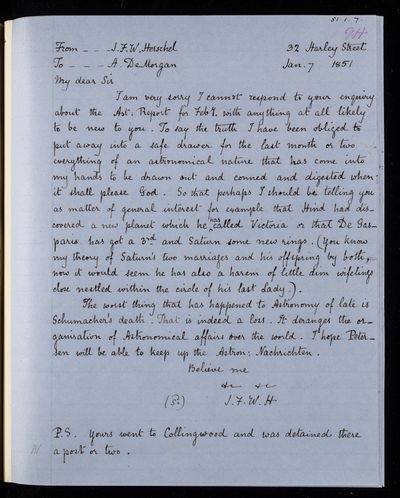 51.1.7.
From - - - J.F.W. Herschel 32 Harley Street
To - - - - A. DeMorgan Jan. 7 1851
My dear Sir
I am very sorry I cannot respond to your enquiry
about the Ast: Report for Feb.y. with anything at all likely
to be new to you. To say the truth I have been obliged to
put away into a safe drawer for the last month or two
everything of an astronomical nature that has come into
my hands to be drawn out and conned and digested when
it shall please God. So that perhaps I should be telling you
as matter of general interest for example that Hind had dis-
covered a new planet which he has called Victoria or that De Gas-
paris has got a 3rd and Saturn some new rings. (You know
my theory of Saturn's two marriages and his offspring by both,
now it would seem he has also a harem of little dim wiflings
close nestled within the circle of his last Lady.).
The worst thing that has happened to Astronomy of late is
Schumacher's death. That is indeed a loss. It deranges the or-
ganisation of Astronomical affairs over the world. I hope Peter-
sen will be able to keep up the Astron: Nachrichten.
Believe me
&c &c
J.F.W.H.
P.S. Yours went to Collingwood and was detained there
a post or two.